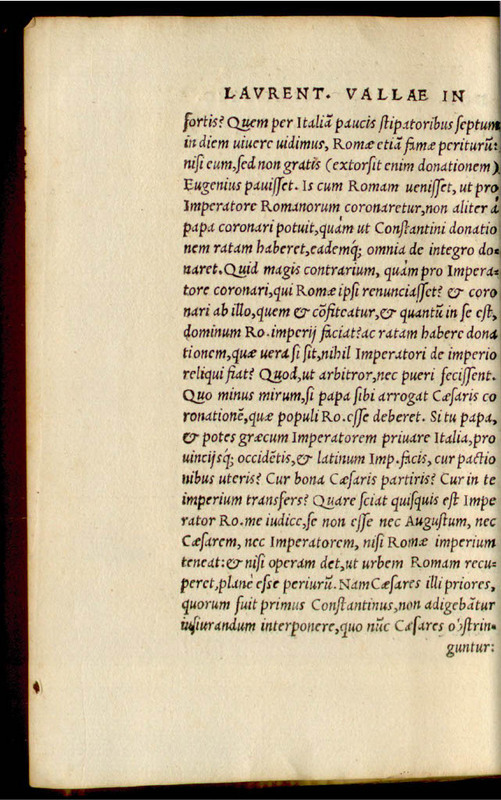 LAVRENT. VALLAE IN
fortis? Quem per Italiã paucis stipatoribus septum
in diem uiuere uidimus, Romæ etiã famæ periturũ:
nisi eum, sed non gratis (extorsit enim donationem)
Eugenius pauisset. Is cum Romam uenisset, ut pro
Imperatore Romanorum coronaretur, non aliter à
papa coronari potuit, quàm ut Constantini donatio
nem ratam haberet, eademq́; omnia de integro do-
naret. Quid magis contrarium, quàm pro Impera-
tore coronari, qui Romæ ipsi renunciasset? & coro
nari ab illo, quem & cõfiteatur, & quantũ in se est,
dominum Ro. imperij faciat? ac ratam habere dona
tionem, quæ uera si sit, nihil Imperatori de imperio
reliqui fiat? Quod, ut arbitror, nec pueri fecissent.
Quo minus mirum, si papa sibi arrogat Cæsaris co
ronationẽ, quæ populi Ro. esse deberet. Si tu papa,
& potes græcum Imperatorem priuare Italia, pro
uincijsq́; occidẽtis, & latinum Imp. facis, cur pactio
nibus uteris? Cur bona Cæsaris partiris? Cur in te
imperium transfers? Quare sciat quisquis est Impe
rator Ro. me iudice, se non esse nec Augustum, nec
Cæsarem, nec Imperatorem, nisi Romæ imperium
teneat: & nisi operam det, ut urbem Romam recu-
peret, planè esse periurũ. Nam Cæsares illi priores,
quorum fuit primus Constantinus, non adigebãtur
iusiurandum interponere, quo nũc Cæsares obstrin-
guntur: